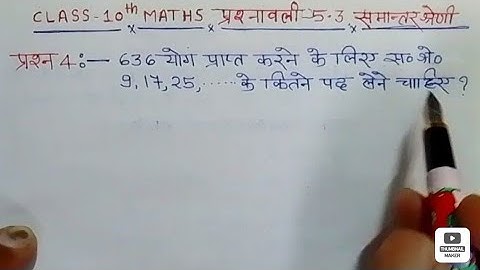 CLASS-10th MATHS प्रश्नावली-5.3 समान्तर श्रेणी
प्रश्न 4:— 636 योग प्राप्त करने के लिए स० श्रे०
9,17,25,...... के कितने पद लेने चाहिए ?
THUMBNAIL
MAKER